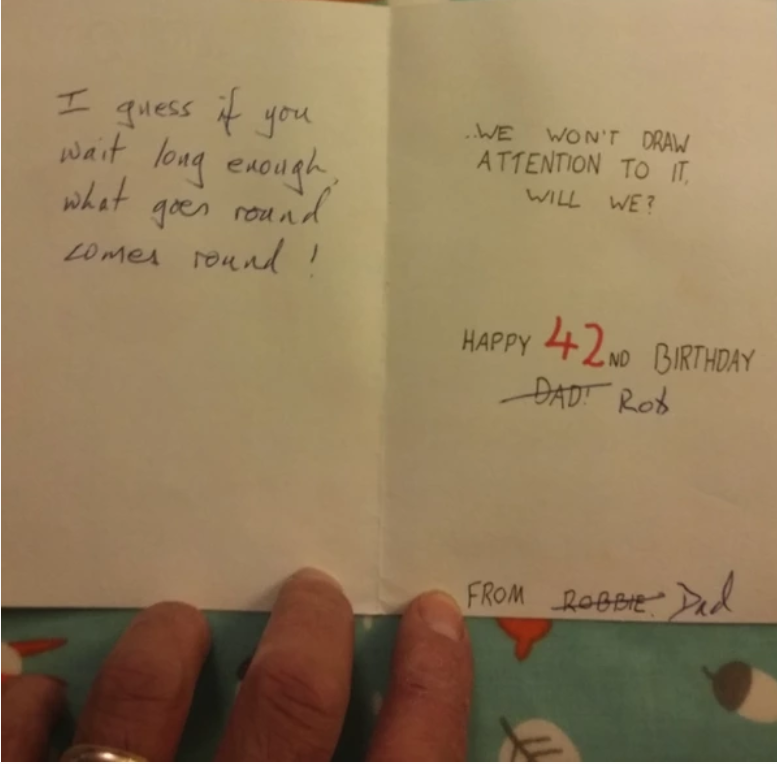 I guess if you
wait long enough,
what goes round
comes round !
..WE WON'T DRAW
ATTENTION TO IT,
WILL WE?
HAPPY 42ND BIRTHDAY
DAD! Rob
FROM ROBBIE. Dad